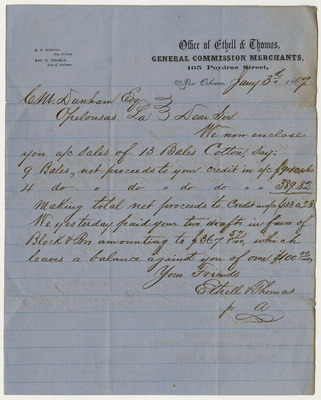 Office of Ethell & Thomas,
GENERAL COMMISSION MERCHANTS,
105 Poydras Street,
New Orleans, Jany 3rd 1867
C. M. Dunham Esq
Opelousas La
Dear Sir
We now enclose
you a/c sales of 13 Bales Cotton, Say:
9 Bales, net proceeds to your credit in a/c
4 do do do do 389.82
Making total net proceeds to Credit in a/c
We yesterday paid your two drafts in favor of
Block & Bro amounting to $367 which
leaves a balance against you of over $100
Your Friends
Ethell & Thomas
pr A